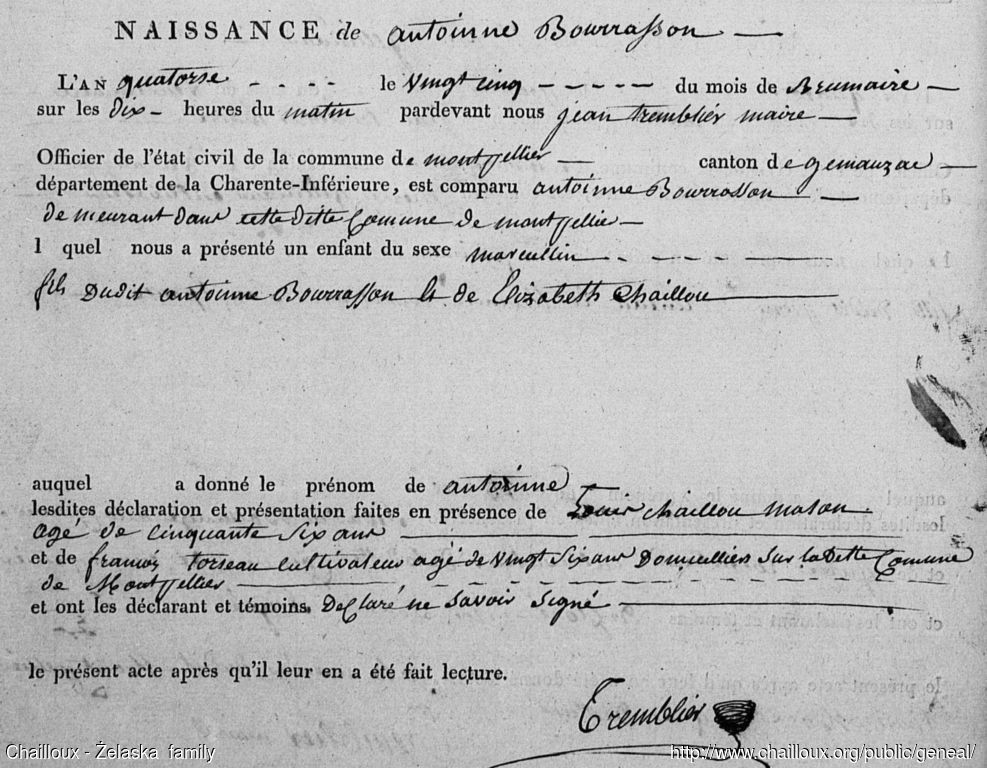 NAISSANCE de antoinne Bourrasson
L'AN quatorse le vingt cinq du mois de Breumaire
sur les dix heures du matin pardevant nous jean tremblier maire
Officier de l'état civil de la commune de montpellier canton de gemauzac
département de la Charente-Inférieure, est comparu antoinne Bourrasson
de meurant dans cette ditte Comune de montpellier
l quel nous a présenté un enfant du sexe mascullin
fils dudit antoinne Bourrasson & de Elizabeth Chaillou
auquel a donné le prénom de antoinne
lesdites déclaration et présentation faites en présence de Louis chaillou mason
agé de cinquante six ans
et de francois torseau cultivateur agé de vingt six ans Domicilliers sur la Dette Comune
de Montpellier
et ont les déclarant et témoins. Déclaré ne savoir signé
le présent acte après qu'il leur en a été fait lecture.
Tremblier
Chailloux - Želaska family http://www.chailloux.org/public/geneal/